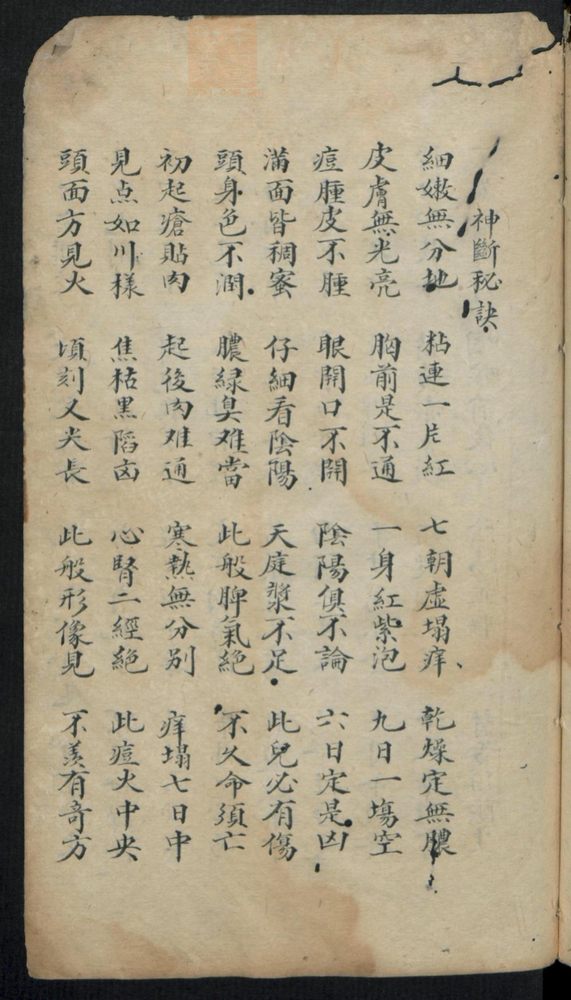 神斷秘訣
細嫩無分地 粘連一片紅 七朝虛塌痒 乾燥定無膿
皮膚無光亮 胸前是不通 一身紅紫泡 九日一塲空
痘腫皮不腫 眼開口不開 陰陽俱不論 六日定是凶
滿面皆稠蜜 仔細看陰陽 天庭漿不足 此兒必有傷
頭身色不潤 膿緑臭难當 此般脾氣絕 不久命須亡
初起瘡貼肉 起後肉难通 寒熱無分别 痒塌七日中
見点如川樣 焦枯黑陷凶 心腎二經絕 此痘火中央
頭面方見火 頃刻又尖長 此般形像見 不羨有奇方